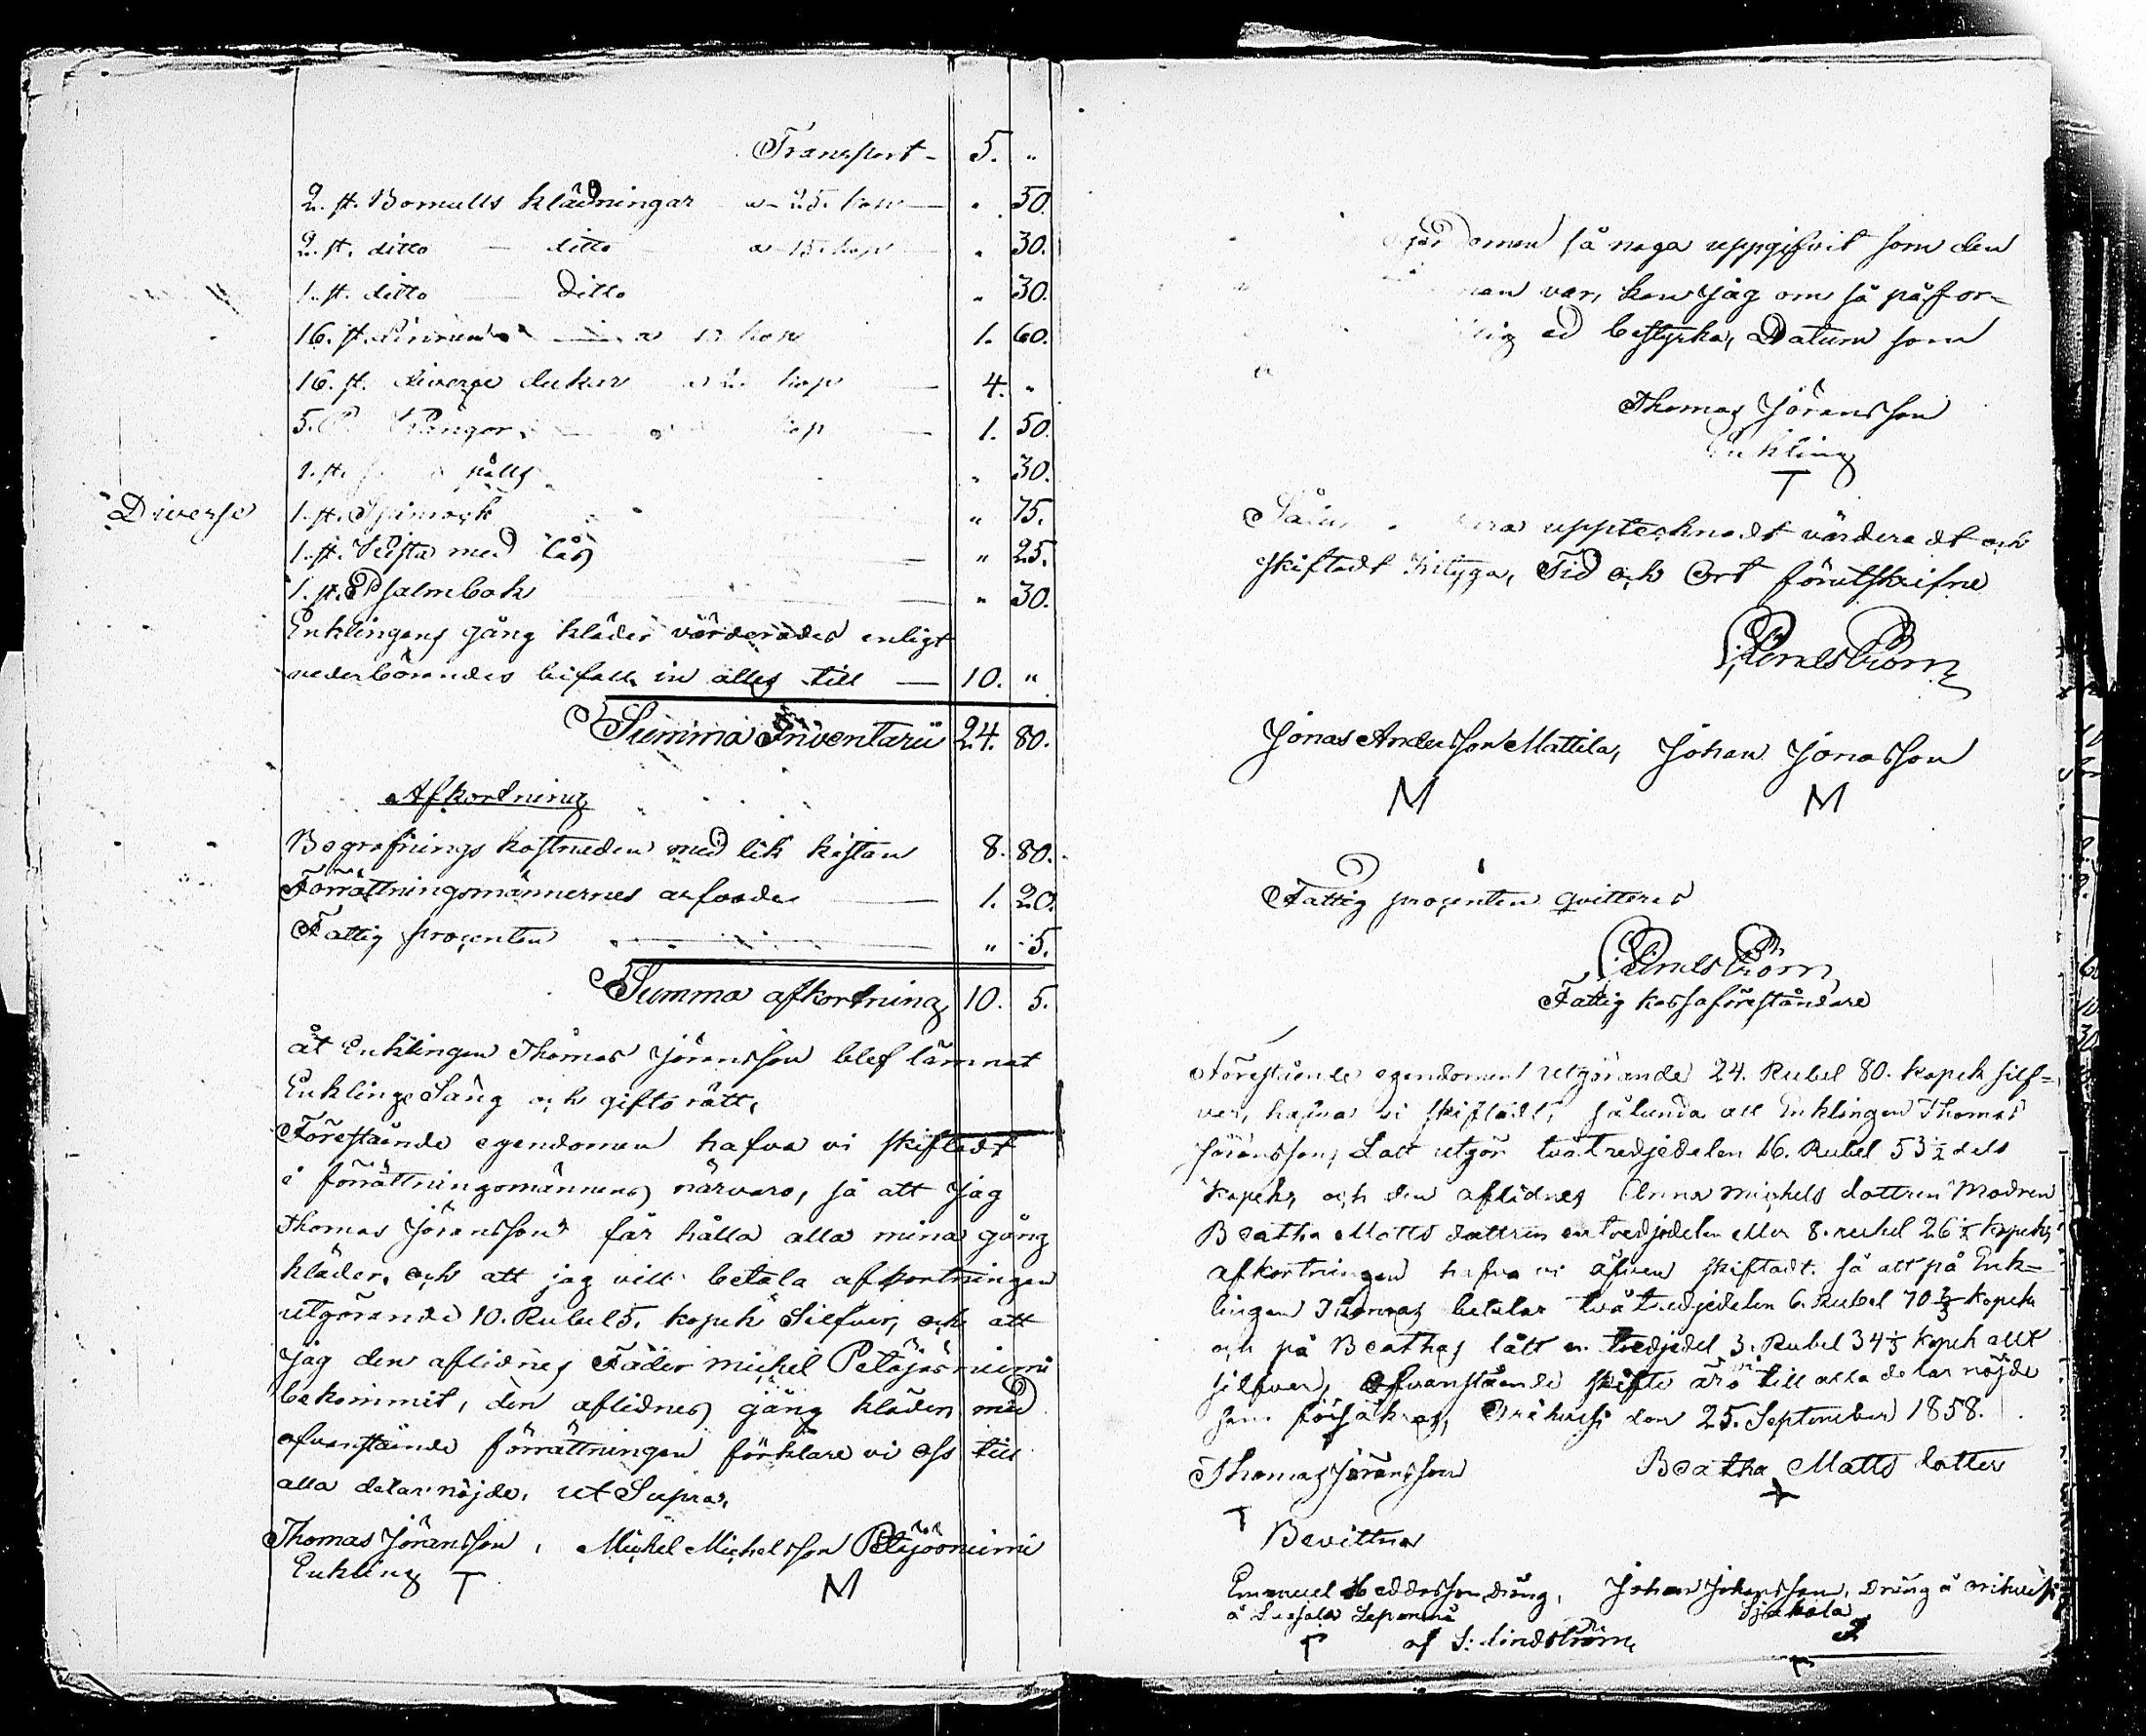 Transport - 5. "
2. st. Bomulls klädningar a 25. kop — " 50.
2. st. ditto — ditto a 15. kop — " 30.
1. st. ditto — Ditto " 30.
16. st. a kop 1. 60.
16. st. diverse dukar a kop — 4. "
5. kop — 1. 50.
1. st. pälts " 30.
Diverse 1. st. " 75.
1. st. Kista med lås — " 25.
1. st. Psalmbok — " 30.
Enklingens gång kläder värderades enligt
vederbörandes bifall in alles till — 10. "
Summa Inventarii 24. 80.
Afkortning
Begrafnings kostnaden med lik kistan 8. 80.
Förrättningsmännernes arfvode — 1. 20.
Fattig procenten — " 5.
Summa afkortning 10. 5.
åt Enklingen Thomas Jöransson blef lämnat
Enklings Säng och giftorätt,
Förestående egendomen hafva vi skiftadt
i förrättningsmännens närvaro, så att jag
Thomas Jöransson får hålla alla mina gång
kläder, och att jag vill betala afkortningen
utgörande 10. Rubel 5. kopek Silfver, och att
jag den aflidnes Fader Michel Petäjäsniemi
bekommit, den aflidnes gång kläder, med
ofvanstående förrättningen förklare vi oss till
alla delar nöjde, ut Supra,
Thomas Jöransson, Michel Michelsson Petäjöoniemi
Enkling T M
domen så noga uppgifvit som den
var, kan jag om så påfor=
lig ed bestyrka, Datum som
Thomas Jöransson
Enkling
T
upptecknadt värderadt och
skiftadt betyga, Tid och Ort förutskrifne
Lindström
Jonas Andersson Mattila, Johan Jonasson
M M
Fattig procenten qvitteras
Lindström
Fattig kassaföreståndare
Förestående egendomen utgörande 24. Rubel 80. kopek silf=
ver, hafva vi skiftadt, sålunda att Enklingen Thomas
Jöransson, Lått utgör två tredjedelen 16. Rubel 53 1/2 dels
kopek, och den aflidnes Anna Michels dottren Modren
Beatha Matts dottren en tredjedelen eller 8. rubel 26 1/2 kopek,
afkortningen hafva vi äfven skiftadt. så att på Enk=
lingen Thomas betalar två tredjedelen 6. Rubel 70 2/3 kopek
och på Beathas lått en tredjedel 3. Rubel 34 1/3 kopek allt
silfver, Ofvanstående skifte äro vi till alla delar nöjde
som försäkras, den 25. September 1858.
Thomas Jöransson Beatha Matts dotter
T +
Bevittna
Emanuel dräng, Johan Johansson, dräng å
å
af S: Lindström